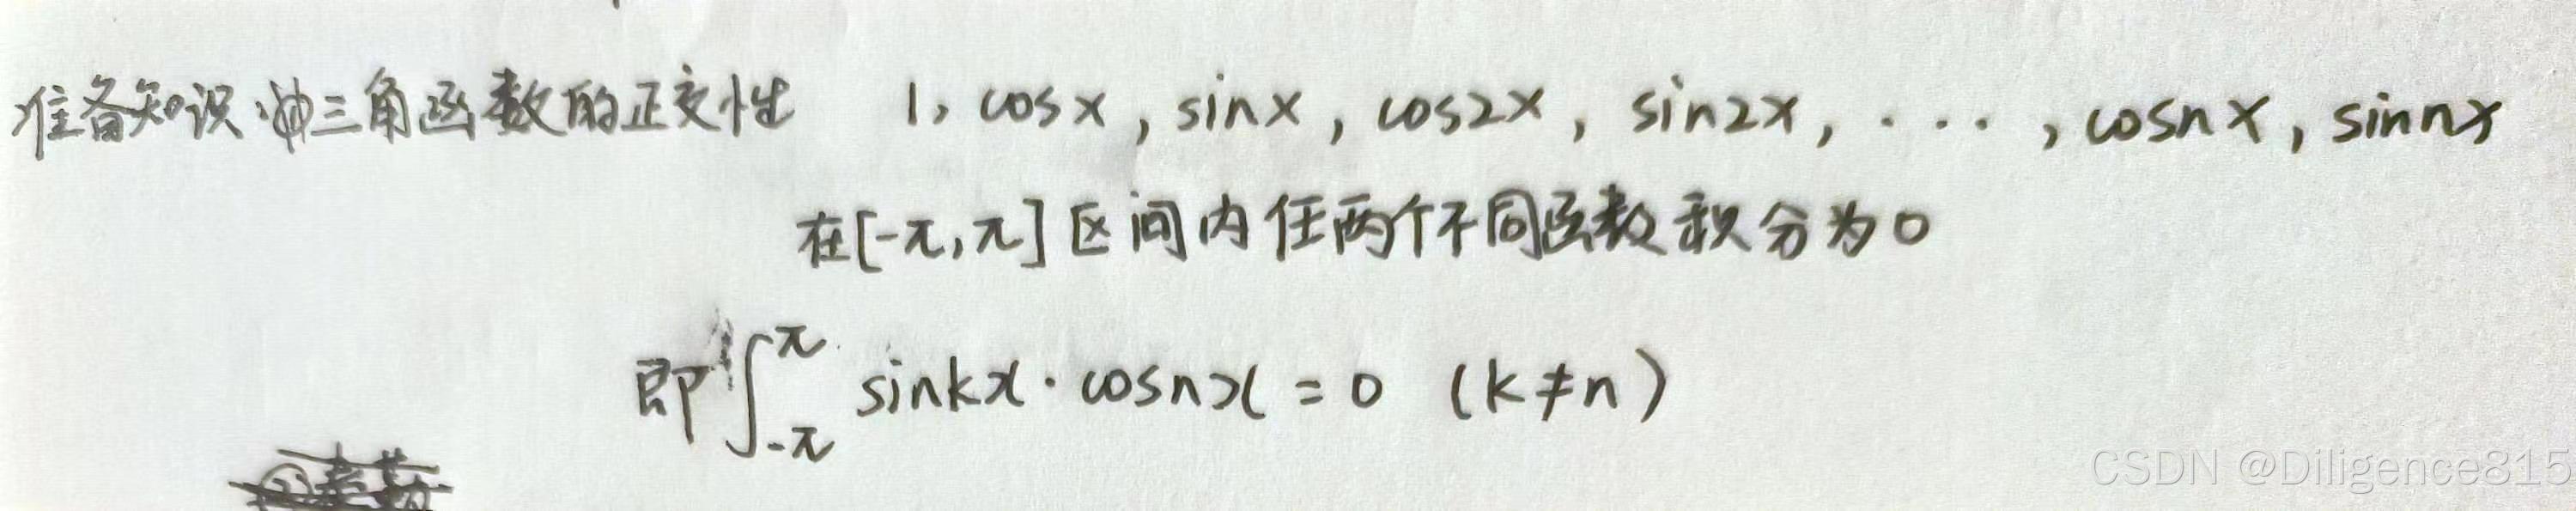 准备知识 ① 三角函数的正交性 1, cosx, sinx, cos2x, sin2x, ..., cosnx, sinnx
在[-π,π]区间内任两个不同函数积分为0
即∫_{-π}^{π} sinkx·cosnx = 0 (k≠n)
CSDN @Diligence815